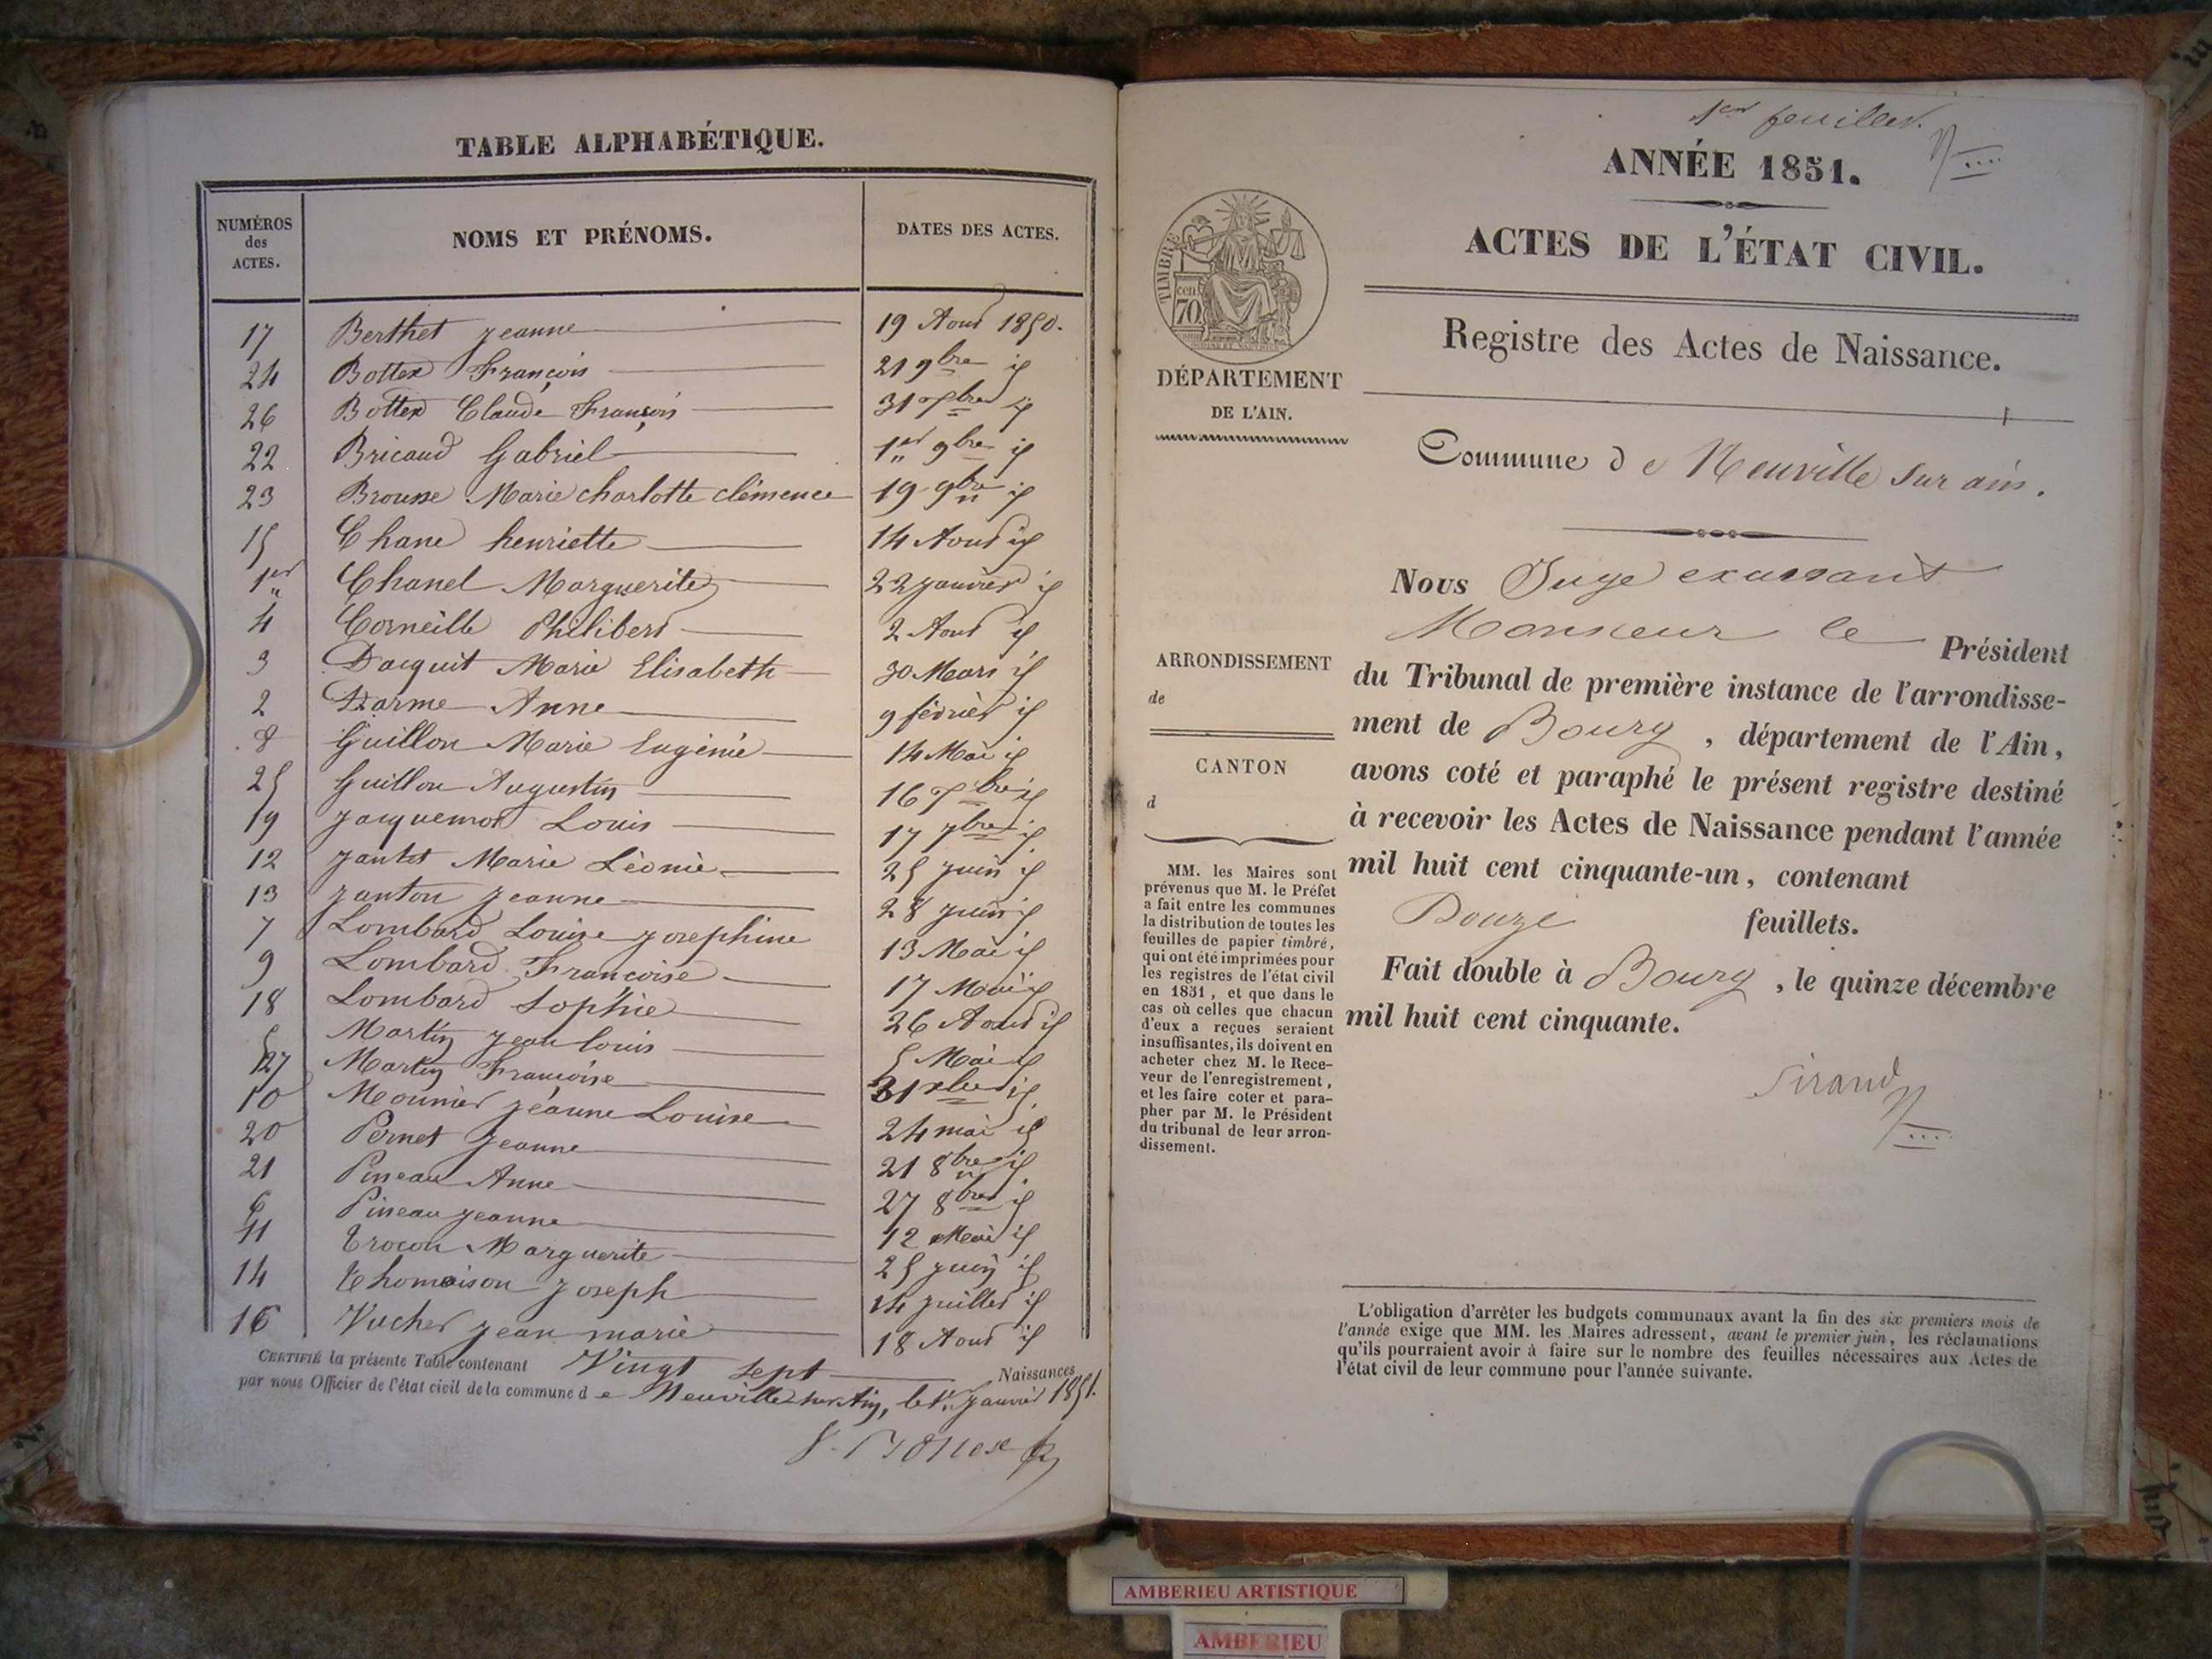 TABLE ALPHABÉTIQUE.
NUMÉROS des ACTES. NOMS ET PRÉNOMS. DATES DES ACTES.
17 Berthet Jeanne 19 Aout 1850.
24 Bottex François 21 9bre id
26 Bottex Claude François 31 Xbre id
22 Bricaud Gabriel 1er 9bre id
23 Brousse Marie charlotte clémence 19 9bre id
15 Chane henriette 14 Aout id
1er Chanel Marguerite 22 janvier id
4 Corneille Philibert 2 Aout id
3 Dacquit Marie Elisabeth 30 Mars id
2 Darme Anne 9 février id
8 Guillon Marie Eugénie 14 Mai id
25 Guillon Augustin 16 Xbre id
19 Jacquemot Louis 17 7bre id
12 Jantet Marie Léonie 25 juin id
13 Janton Jeanne 28 juin id
7 Lombard Louise Josephine 13 Mai id
9 Lombard Françoise 17 Mai id
18 Lombard Sophie 26 Aout id
5 Martin Jean louis 5 Mai id
27 Martin Françoise 31 Xbre id
10 Meunier jeanne Louise 24 mai id
20 Pernet Jeanne 21 8bre id
21 Pineau Anne 27 8bre id
6 Pineau Jeanne 12 Mai id
11 Trocon Marguerite 25 juin id
14 Thomaison Joseph 14 juillet id
16 Vucher Jean marie 18 Aout id
CERTIFIÉ la présente Table contenant Vingt sept Naissances
par nous Officier de l'état civil de la commune d e Neuville sur Ain, le 1er Janvier 1851.
1er feuillet.
ANNÉE 1851.
ACTES DE L'ÉTAT CIVIL.
TIMBRE
cen.
70
Registre des Actes de Naissance.
DÉPARTEMENT
DE L'AIN.
Commune d e Neuville sur ain.
Nous Juge exussant
Monsieur le Président
du Tribunal de première instance de l'arrondisse-
ment de Bourg, département de l'Ain,
avons coté et paraphé le présent registre destiné
à recevoir les Actes de Naissance pendant l'année
mil huit cent cinquante-un, contenant
Douze feuillets.
Fait double à Bourg, le quinze décembre
mil huit cent cinquante.
Sirand
ARRONDISSEMENT
de
CANTON
d
MM. les Maires sont
prévenus que M. le Préfet
a fait entre les communes
la distribution de toutes les
feuilles de papier timbré,
qui ont été imprimées pour
les registres de l'état civil
en 1851, et que dans le
cas où celles que chacun
d'eux a reçues seraient
insuffisantes, ils doivent en
acheter chez M. le Rece-
veur de l'enregistrement,
et les faire coter et para-
pher par M. le Président
du tribunal de leur arron-
dissement.
L'obligation d'arrêter les budgets communaux avant la fin des six premiers mois de
l'année exige que MM. les Maires adressent, avant le premier juin, les réclamations
qu'ils pourraient avoir à faire sur le nombre des feuilles nécessaires aux Actes de
l'état civil de leur commune pour l'année suivante.
AMBERIEU ARTISTIQUE
AMBERIEU